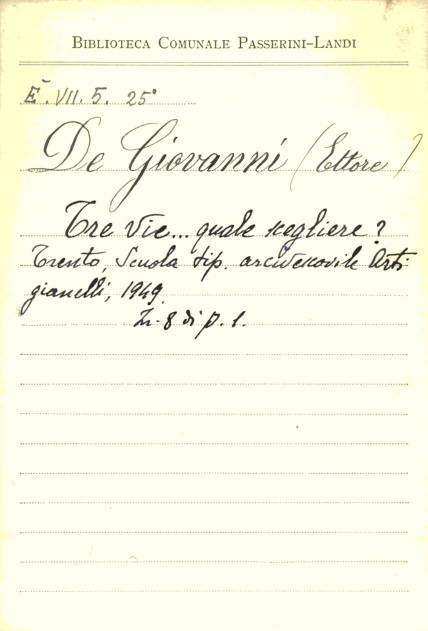 BIBLIOTECA COMUNALE PASSERINI-LANDI
E. VII. 5. 25°
De Giovanni (Ettore)
Tre vie... quale scegliere?
Trento, Scuola tip. arcivescovile Arti-
gianelli, 1949.
In-8 di p. 1.